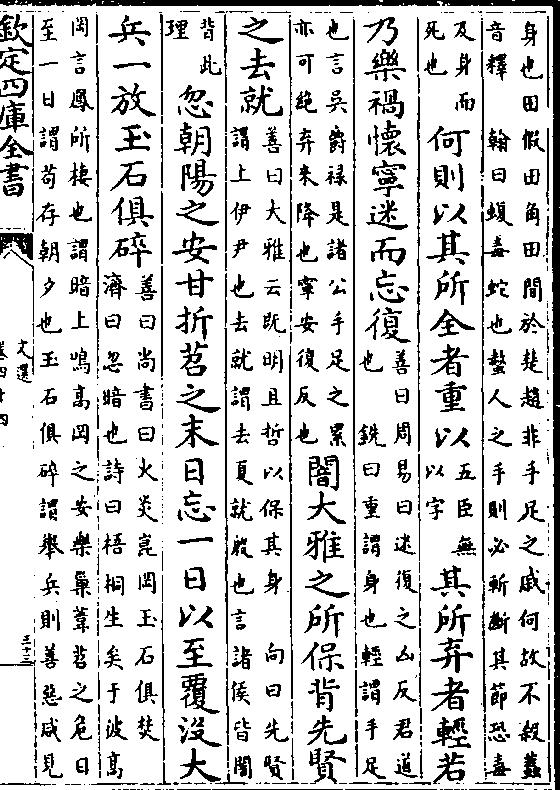 身也田假田角田間於楚趙非手足之戚何故不殺蠚
音釋　翰曰蝮毒蛇也螫人之手則必斬斷其節恐毒
及身而
死也
何則以其所全者重以
五臣無
以字
其所弃者輕若
乃樂禍懷寧迷而忘復
善曰周易曰迷復之凶反君道
也　銑曰重謂身也輕謂手足
也言吳爵禄是諸公手足之累
亦可絶弃来降也寧安復反也
闇大雅之所保背先賢
之去就
善曰大雅云既明且哲以保其身　向曰先賢
謂上伊尹也去就謂去夏就殷也言諸侯皆闇
背此
理
忽朝陽之安甘折苕之末日忘一日以至覆没大
兵一放玉石俱碎
善曰尚書曰火炎崑岡玉石俱焚
濟曰忽暗也詩曰梧桐生矣于彼高
岡言鳳所棲也謂暗上鳴高岡之安樂巢葦苕之危日
至一日謂苟存朝夕也玉石俱碎謂舉兵則善惡咸見
欽定四庫全書
文選
卷四十四
三十三